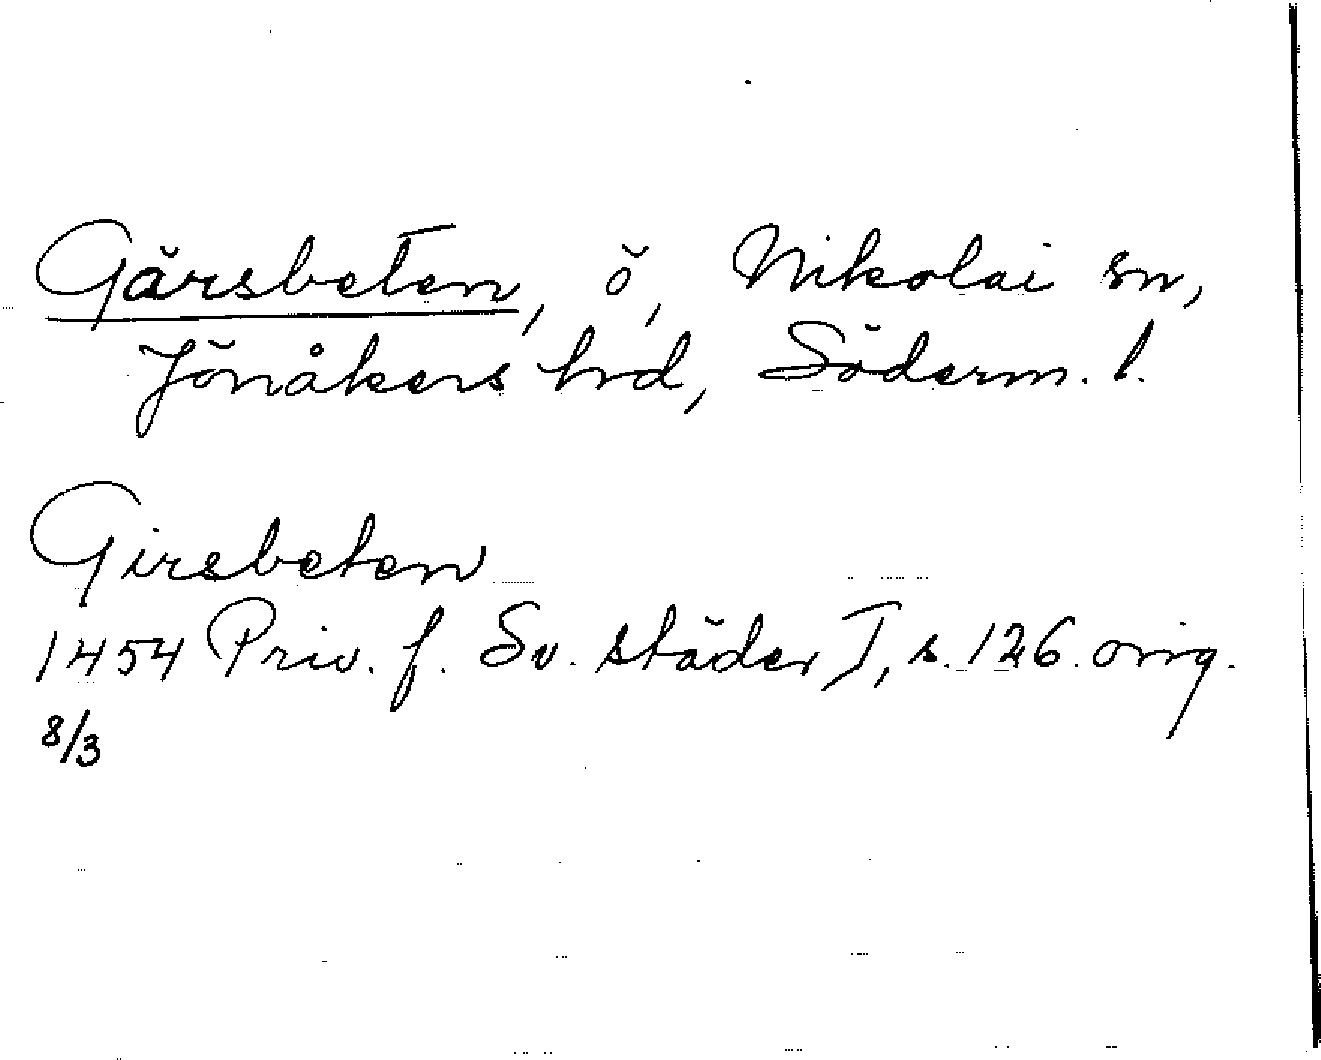 Gärsbeten, ö, Nikolai sn,
Jönåkers hrd, Söderm. l.
Girsbeten
1454 Priv. f. Sv. städer I, s. 126. orig.
8/3